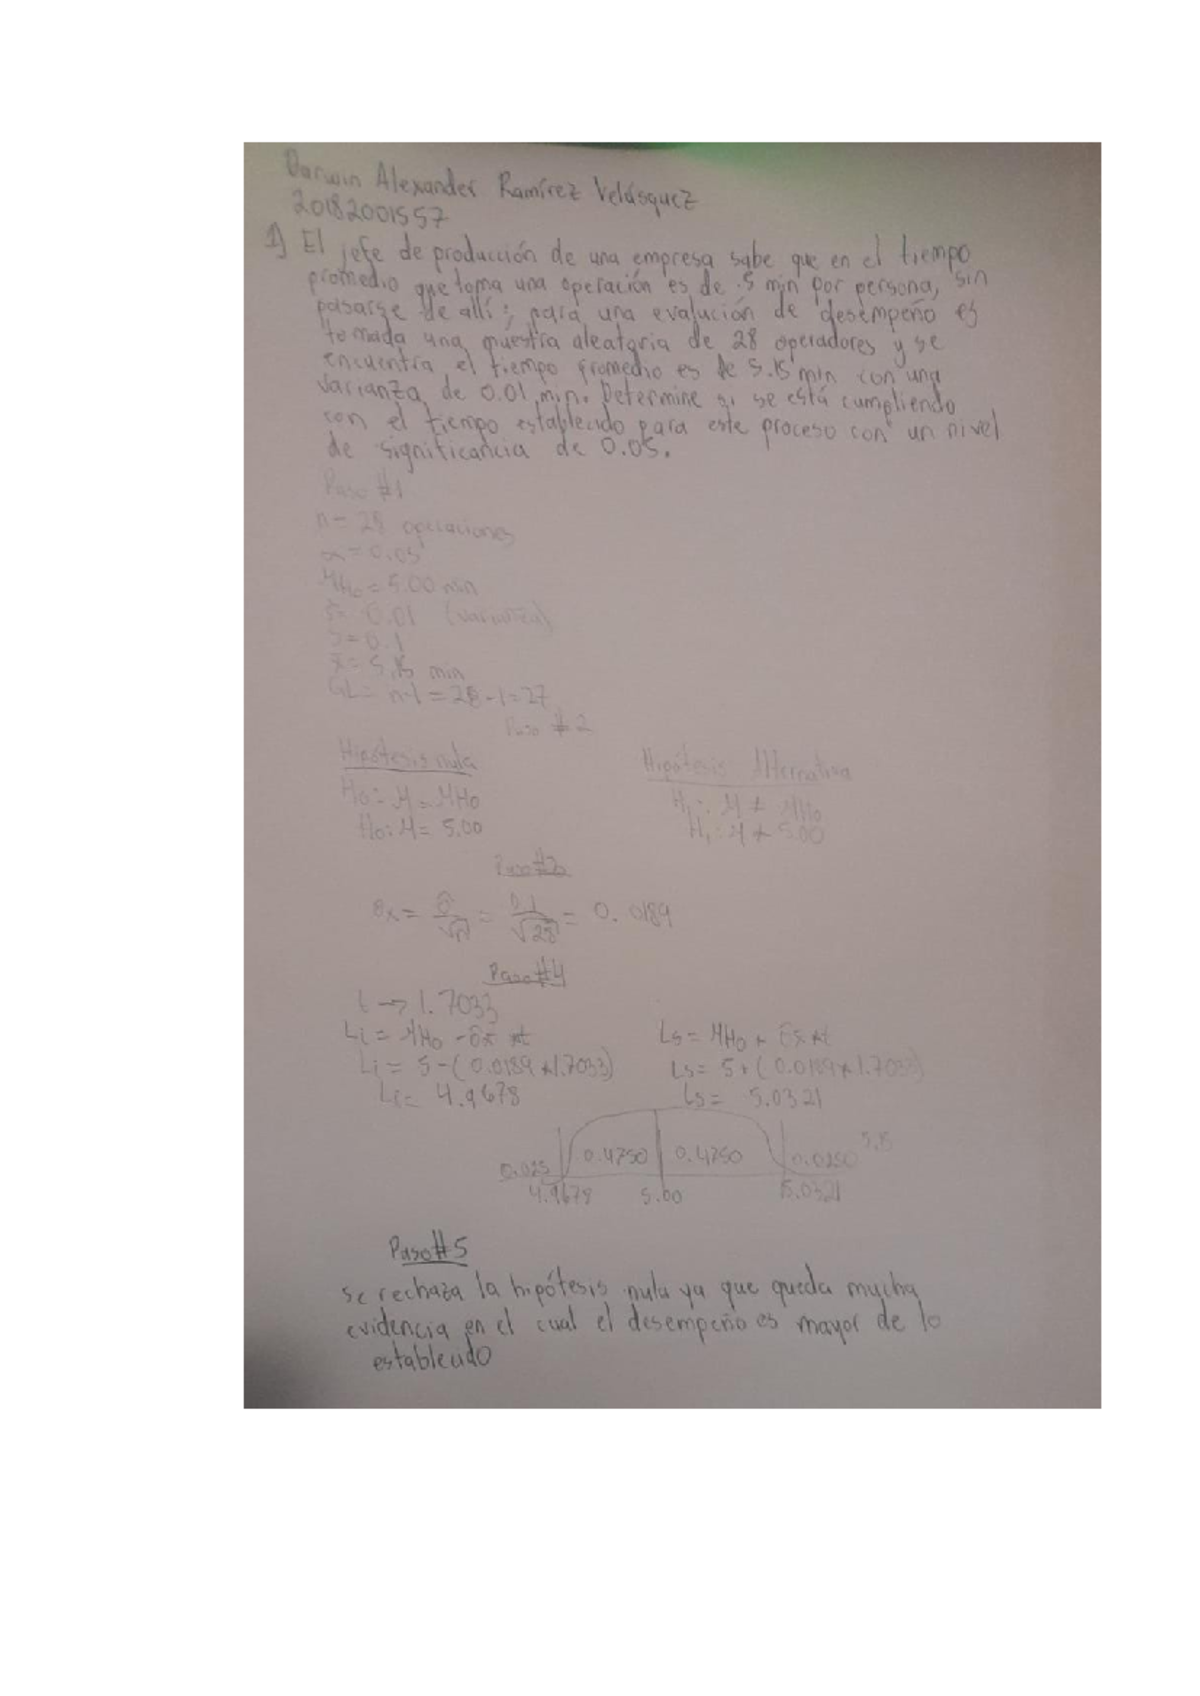 Darwin Alexander Ramírez Velásquez
20182001557
1) El jefe de producción de una empresa sabe que en el tiempo
promedio que toma una operación es de 5 min por persona, sin
pasarse de allí; para una evalución de desempeño es
tomada una muestra aleatoria de 28 operadores y se
encuentra el tiempo promedio es de 5.15 min con una
varianza de 0.01 min. Determine si se está cumpliendo
con el tiempo establecido para este proceso con un nivel
de significancia de 0.05.
Paso #1
n= 28 operaciones
α=0.05
μHo=5.00 min
s²= 0.01 (varianza)
s=0.1
x̄= 5.15 min
GL= n-1=28-1=27
Paso #2
Hipótesis nula Hipótesis Alternativa
Ho: μ=μHo H₁: μ ≠ μHo
Ho: μ= 5.00 H₁: μ ≠ 5.00
Paso #3
σx= σ/√n = 0.1/√28 = 0.0189
Paso #4
t → 1.7033
Li= μHo -σx̄ *t Ls= μHo + σx̄ *t
Li= 5-(0.0189*1.7033) Ls= 5+(0.0189*1.7033)
Li= 4.9678 Ls= 5.0321
0.025 0.4750 0.4750 0.0250 5.15
4.9678 5.00 5.0321
Paso #5
se rechaza la hipótesis nula ya que queda mucha
evidencia en el cual el desempeño es mayor de lo
establecido